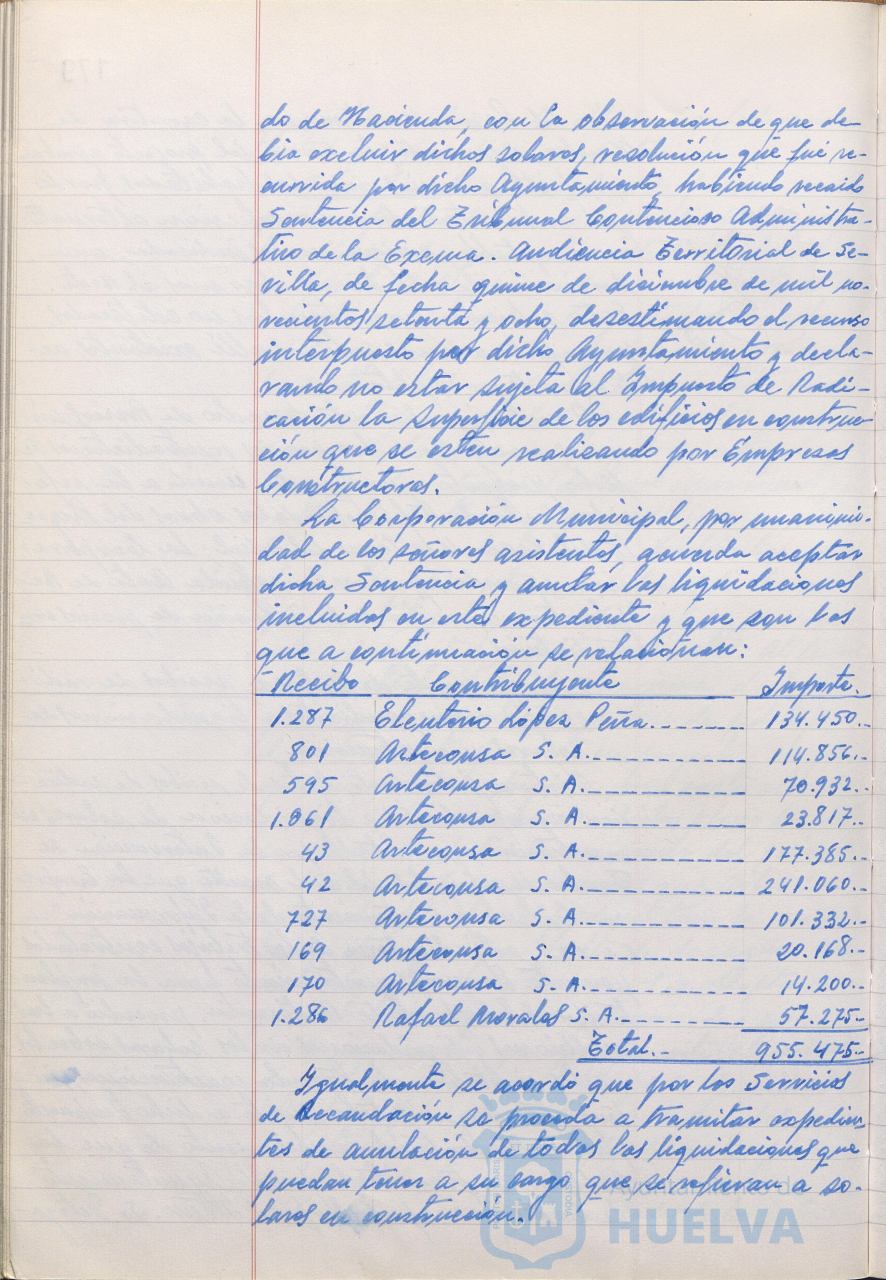 do de Hacienda, con la observación de que de-
bia excluir dichos solares, resolución que fué re-
currida por dicho Ayuntamiento, habiendo recaido
Sentencia del Tribunal Contencioso Administra-
tivo de la Excma. Audiencia Territorial de Se-
villa, de fecha quince de diciembre de mil no-
vecientos setenta y ocho, desestimando el recurso
interpuesto por dicho Ayuntamiento y decla-
rando no estar sujeta al Impuesto de Radi-
cación la superficie de los edificios en construc-
ción que se esten realizando por Empresas
Constructoras.
La Corporación Municipal, por unanimi-
dad de los señores asistentes, acuerda aceptar
dicha Sentencia y anular las liquidaciones
incluidas en este expediente y que son las
que a continuación se relacionan:
Recibo Contribuyente Importe.
1.287 Eleuterio López Peña. 134.450.-
801 Arteconsa S. A. 114.856.-
595 Arteconsa S. A. 70.932.-
1.061 Arteconsa S. A. 23.817.-
43 Arteconsa S. A. 177.385.-
42 Arteconsa S. A. 241.060.-
727 Arteconsa S. A. 101.332.-
169 Arteconsa S. A. 20.168.-
170 Arteconsa S. A. 14.200.-
1.286 Rafael Morales S. A. 57.275.-
Total.- 955.475.-
Igualmente se acordó que por los Servicios
de Recaudación se proceda a tramitar expedien-
tes de anulación de todas las liquidaciones que
puedan tener a su cargo que se refieran a so-
lares en construcción.
Ayuntamiento de
HUELVA